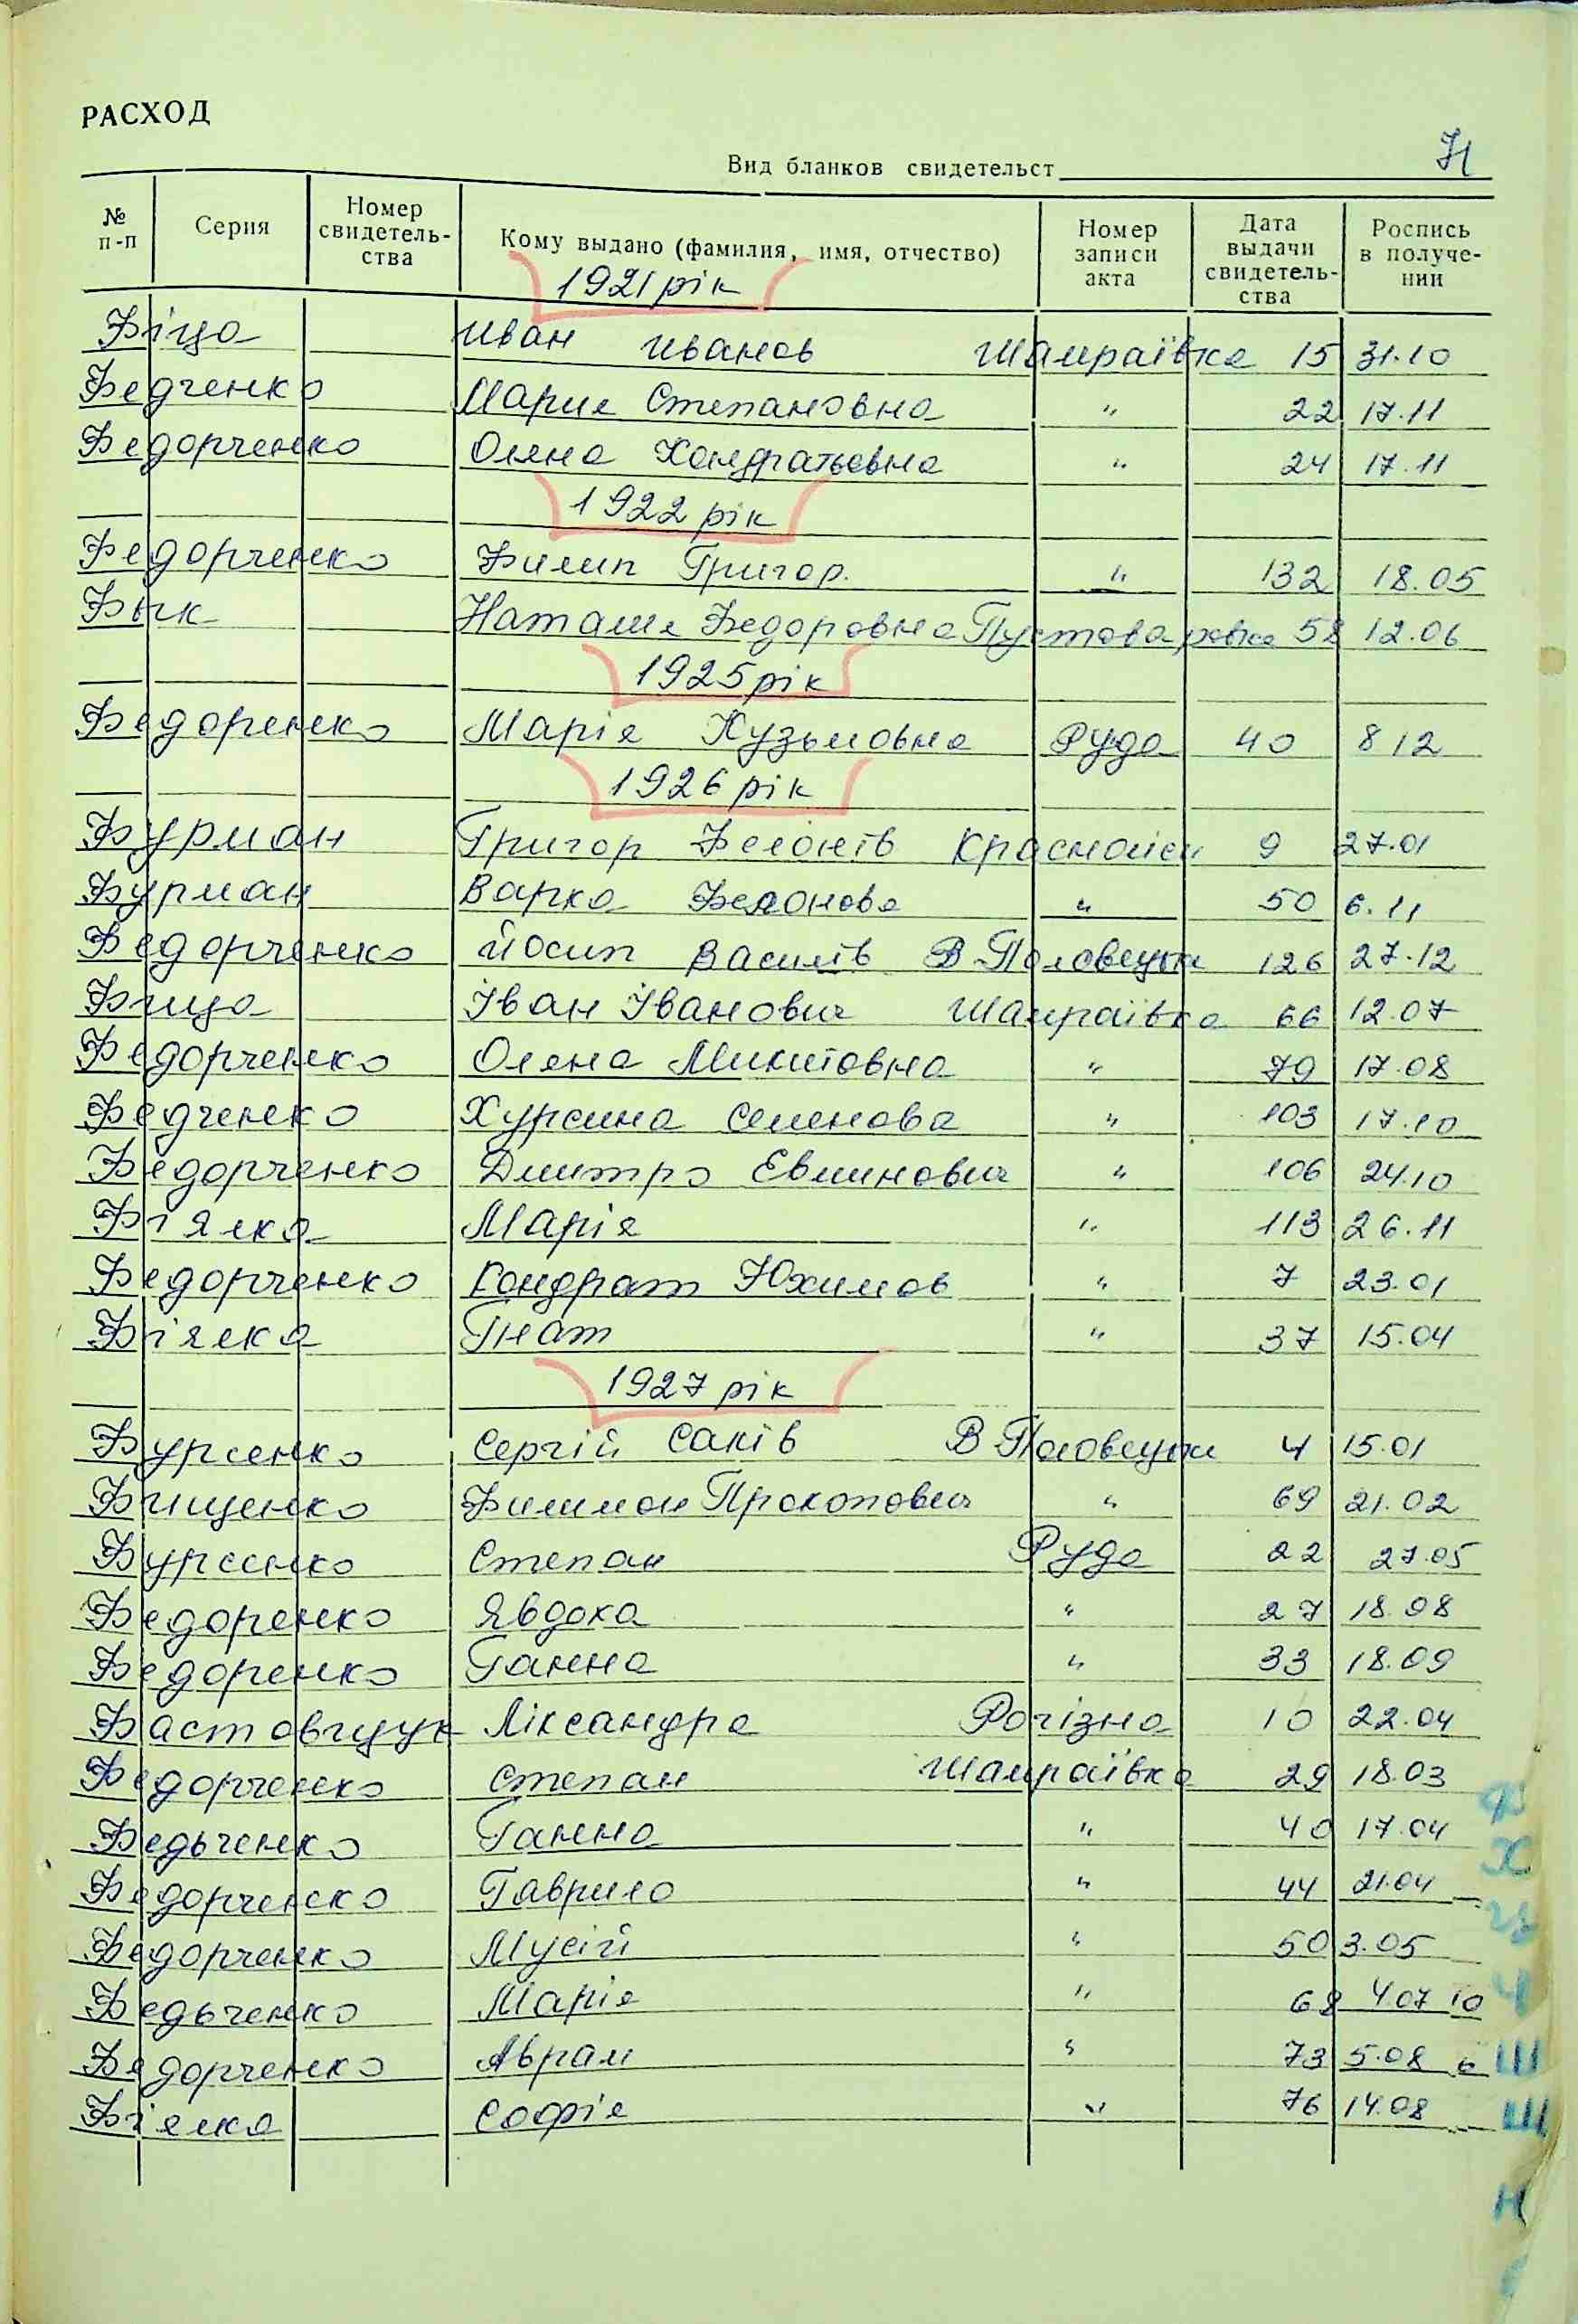 РАСХОД
Вид бланков свидетельст
№ п-п Серия Номер свидетель-ства Кому выдано (фамилия, имя, отчество) Номер записи акта Дата выдачи свидетель-ства Роспись в получе-нии
1921 рік
Фіца Иван Иванов Шамраївка 15 31.10
Федченко Мария Степановна " 22 17.11
Федорченко Олена Кондратьевна " 24 17.11
1922 рік
Федорченко Филип Григор. " 132 18.05
Фык Наталия Федоровна Пустоваровка 58 12.06
1925 рік
Федоренко Марія Кузьмовна Руда 40 8 12
1926 рік
Фурман Григор Фелонів Краснолісы 9 27.01
Фурман Варка Фелонова " 50 6.11
Федорченко Йосип Василів В Половецьки 126 27.12
Фица Іван Іванович Шамраївка 66 12.07
Федорченко Олена Микитовна " 79 17.08
Федченко Хурсина Семенова " 103 17.10
Федорченко Дмитро Евминович " 106 24.10
Фіялка Марія " 113 26.11
Федорченко Кондрат Юхимов " 7 23.01
Фіялка Гнат " 37 15.04
1927 рік
Фурсенко Сергій Саків В Половецьки 4 15.01
Фищенко Филимон Прокопович " 69 21.02
Фурсенко Степан Руда 22 27.05
Федоренко Явдоха " 27 18.08
Федоренко Ганна " 33 18.09
Фастовщук Ліксандра Рогізна 10 22.04
Федорченко Степан Шамраївка 29 18.03
Федьченко Ганна " 40 17.04
Федорченко Гаврило " 44 21.04
Федорченко Мусій " 50 3.05
Федьченко Марія " 68 4.07 10
Федорченко Аврам " 73 5.08 6
Фіялка Софія " 76 14.08
Ф
Х
Ц
Ч
Ш
Щ